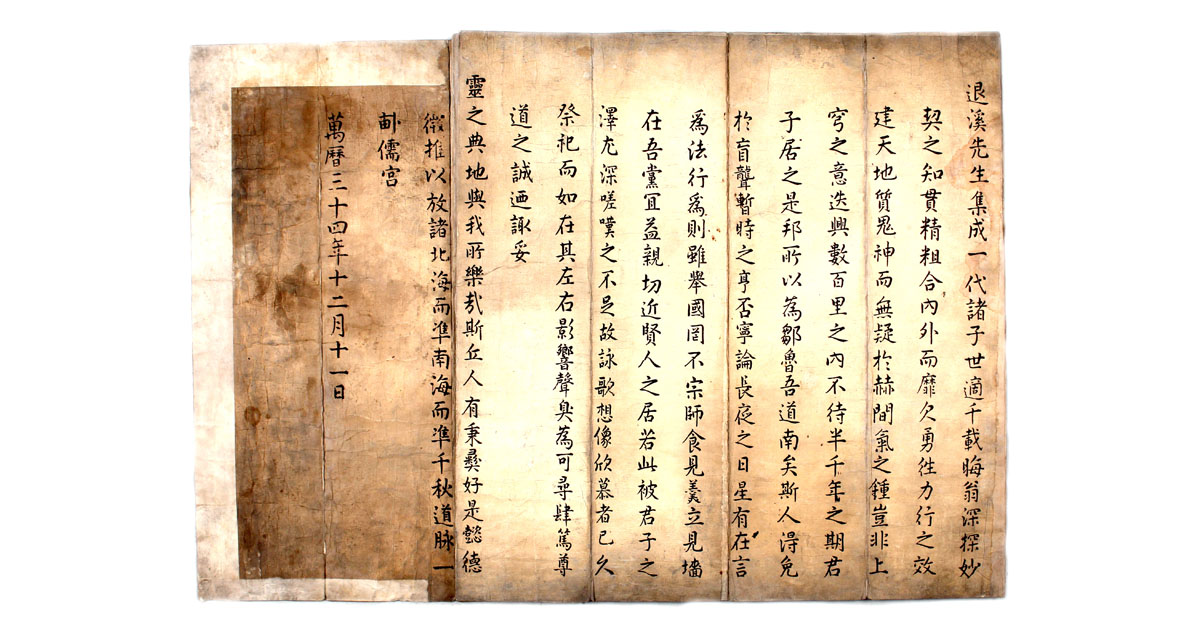 退溪先生集成一代諸子世適千載晦翁深探妙
契之知貫精粗合內外而靡欠勇徃力行之效
建天地質鬼神而無疑於赫間氣之鍾豈非上
穹之意迭興數百里之內不待半千年之期君
子居之是邦所以爲鄒魯吾道南矣斯人得免
於盲聾暫時之亨否寧論長夜之日星有在言
爲法行爲則雖擧國罔不宗師食見羹立見墻
在吾黨冝益親切近賢人之居若此被君子之
澤尤深嗟嘆之不足故詠歌想像欣慕者已久
祭祀而如在其左右影響聲臭爲可尋肆篤尊
道之誠迺諏妥
靈之典地與我所樂㢤斯丘人有秉彝好是懿德
微推以放諸北海而準南海而準千秋道脉一
儒宮
萬曆三十四年十二月十一日